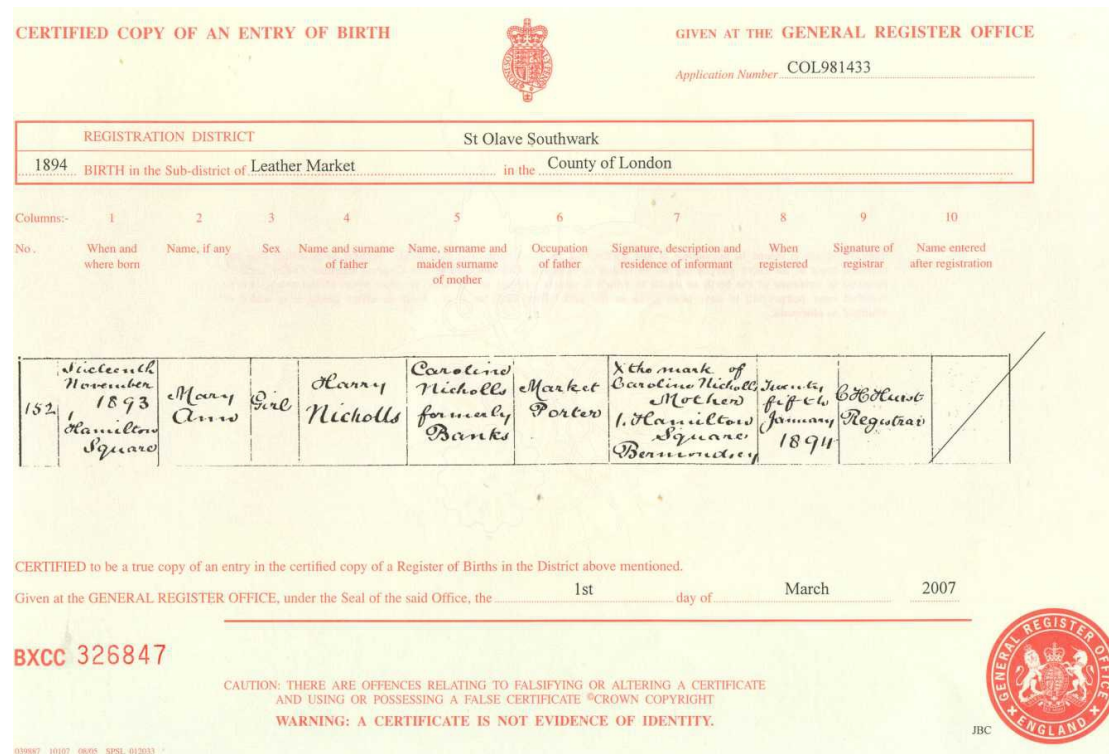 CERTIFIED COPY OF AN ENTRY OF BIRTH
GIVEN AT THE GENERAL REGISTER OFFICE
Application Number COL981433
REGISTRATION DISTRICT St Olave Southwark
1894 BIRTH in the Sub-district of Leather Market in the County of London
Columns:- 1 2 3 4 5 6 7 8 9 10
No. When and where born Name, if any Sex Name and surname of father Name, surname and maiden surname of mother Occupation of father Signature, description and residence of informant When registered Signature of registrar Name entered after registration
152 Sixteenth November 1893 1, Hamilton Square Mary Ann Girl Harry Nicholls Caroline Nicholls formerly Banks Market Porter X the mark of Caroline Nicholls Mother 1, Hamilton Square Bermondsey Twenty fifth January 1894 C H Hurst Registrar
CERTIFIED to be a true copy of an entry in the certified copy of a Register of Births in the District above mentioned.
Given at the GENERAL REGISTER OFFICE, under the Seal of the said Office, the 1st day of March 2007
BXCC 326847
CAUTION: THERE ARE OFFENCES RELATING TO FALSIFYING OR ALTERING A CERTIFICATE
AND USING OR POSSESSING A FALSE CERTIFICATE ©CROWN COPYRIGHT
WARNING: A CERTIFICATE IS NOT EVIDENCE OF IDENTITY.
GENERAL REGISTER OFFICE X ENGLAND X
JBC
039887 10107 08/05 SPSL 012033